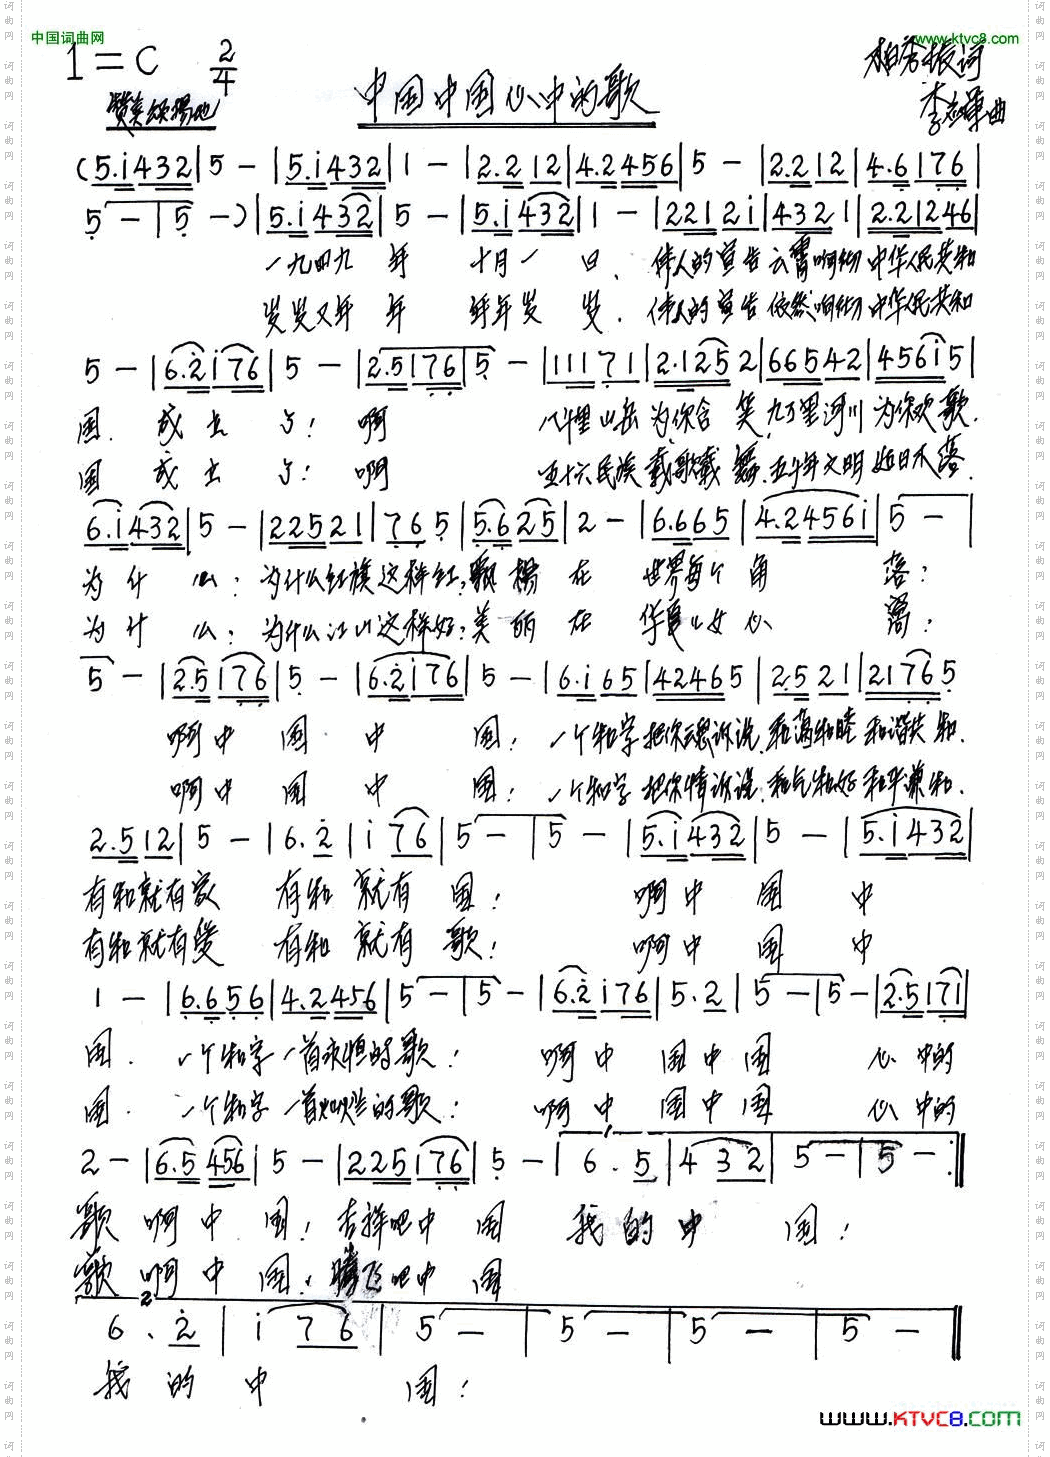 中国词曲网
www.ktvc8.com
1=C 2/4
中国中国心中的歌
柏秀振词
赞美颂扬地
李志曲
(5.i432|5-|5.i432|1-|2.212|4.2456|5-|2.212|4.6176|
5-|5-)|5.i432|5-|5.i432|1-|2212i|4321|2.21246|
一九四九年 十月一日、伟人的宣告云霄响彻中华人民共和
岁岁又年年 年年岁岁.伟人的宣告依然响彻中华人民共和
5-|6.2i76|5-|2.5176|5-|11171|2.1252|66542|456i5|
国.成立了!啊 八千里山岳为你含笑,九万里河川为你欢歌.
国 成立了!啊 五十六民族载歌载舞.五千年文明如日不落.
6.i432|5-|22521|765|5.625|2-|6.665|4.2456i|5-|
为什么:为什么红旗这样红:飘扬在 世界每个角落:
为什么:为什么江山这样好:美丽在 华夏儿女心窝:
5-|2.5176|5-|6.2i76|5-|6.i65|42465|2.521|21765
啊中国.中国:一个和字把你魂诉说.和蔼和睦和谐共和.
啊中国 中国:一个和字把你情诉说.和气和好和平谦和.
2.512|5-|6.2|i76|5-|5-|5.i432|5-|5.i432|
有和就有家 有和就有国: 啊中国中
有和就有爱 有和就有歌: 啊中国中
1-|6.656|4.2456|5-|5-|6.2i76|5.2|5-|5-|2.517i|
国.一个和字一首永恒的歌: 啊中国中国 心中的
国.一个和字一首灿烂的歌: 啊中国中国 心中的
2-|6.5456|5-|225176|5-|6.5|432|5-|5-:||
歌啊中国:吉祥吧中国 我的中国:
歌啊中国:腾飞吧中国
6.2|i76|5-|5-|5-|5-||
我的中国:
www.KTVC8.com